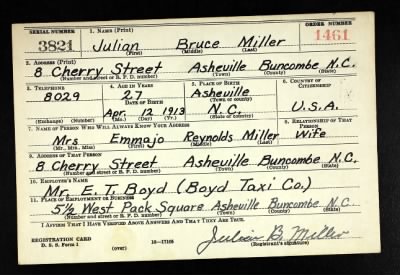 SERIAL NUMBER 1. NAME (Print) ORDER NUMBER
3821 Julian Bruce Miller 1461
(First) (Middle) (Last)
2. ADDRESS (Print)
8 Cherry Street Asheville Buncombe N.C.
(Number and street or R. F. D. number) (Town) (County) (State)
3. TELEPHONE 4. AGE IN YEARS 5. PLACE OF BIRTH 6. COUNTRY OF CITIZENSHIP
8029 27 Asheville
DATE OF BIRTH (Town or county)
Apr. 12 1913 N.C. U.S.A.
(Exchange) (Number) (Mo.) (Day) (Yr.) (State or country)
7. NAME OF PERSON WHO WILL ALWAYS KNOW YOUR ADDRESS 8. RELATIONSHIP OF THAT PERSON
Mrs Emmajo Reynolds Miller Wife
(Mr., Mrs., Miss) (First) (Middle) (Last)
9. ADDRESS OF THAT PERSON
8 Cherry Street Asheville Buncombe N.C.
(Number and street or R. F. D. number) (Town) (County) (State)
10. EMPLOYER'S NAME
Mr. E. T. Boyd (Boyd Taxi Co.)
11. PLACE OF EMPLOYMENT OR BUSINESS
5½ West Pack Square Asheville Buncombe N.C.
(Number and street or R. F. D. number) (Town) (County) (State)
I AFFIRM THAT I HAVE VERIFIED ABOVE ANSWERS AND THAT THEY ARE TRUE.
REGISTRATION CARD
D. S. S. Form 1 (over) 16—17105 Julian B. Miller
(Registrant's signature)